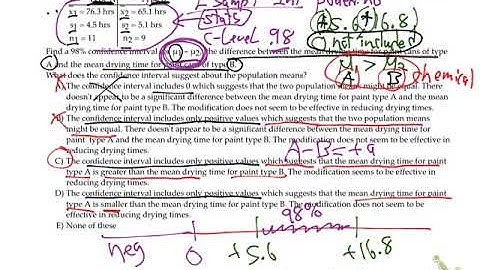 x̄1 = 76.3 hrs x̄2 = 65.1 hrs
s1 = 4.5 hrs s2 = 5.1 hrs
n1 = 11 n2 = 9
Stats
C-level .98
(+5.6, +16.8)
0 not included
μ1 > μ2
A B chemical
Find a 98% confidence interval for μ1 − μ2, the difference between the mean drying time for paint cans of type
A and the mean drying time for paint cans of type B.
What does the confidence interval suggest about the population means?
A) The confidence interval includes 0 which suggests that the two population means might be equal. There
doesn't appear to be a significant difference between the mean drying time for paint type A and the mean
drying time for paint type B. The modification does not seem to be effective in reducing drying times.
B) The confidence interval includes only positive values which suggests that the two population means
might be equal. There doesn't appear to be a significant difference between the mean drying time for
paint type A and the mean drying time for paint type B. The modification does not seem to be effective in
reducing drying times.
A - B = +a
C) The confidence interval includes only positive values which suggests that the mean drying time for paint
type A is greater than the mean drying time for paint type B. The modification seems to be effective in
reducing drying times.
D) The confidence interval includes only positive values which suggests that the mean drying time for paint
type A is smaller than the mean drying time for paint type B. The modification does not seem to be
effective in reducing drying times.
E) None of these
98%
neg 0 +5.6 +16.8